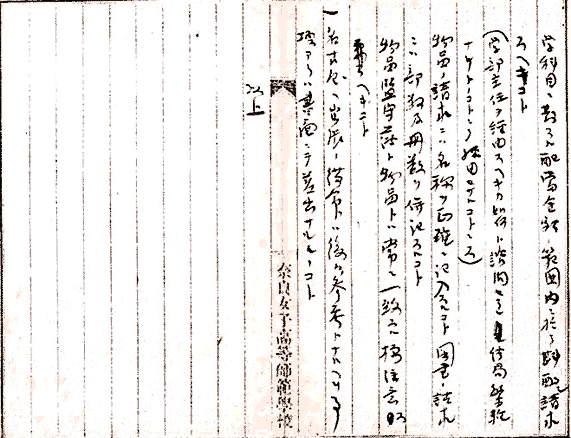 学科目ニ対スル配当金額ノ範囲内ニ於テ請求
スヘキコト
(学部主任ヲ経由スヘキカ如何ト諮問
ナケレトコトニ経由セサルコトニス)
物品ノ請求ニハ名称ヲ正確ニ記入スルコト図書ノ請求
ニハ部数及冊数ヲ併記スルコト
物品監守簿ト物品トハ常ニ一致スル様注意
スヘキコト
一名古屋ヘ出張ノ復命ハ後日参考トナルヘキ事
項アラハ書面ニテ差出サルルコト
以上
奈良女子高等師範學校